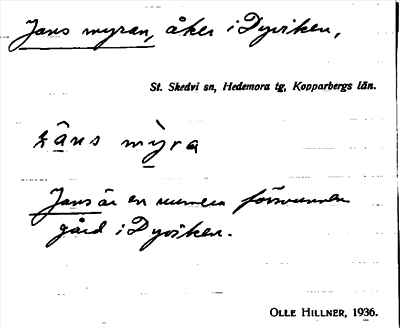 Jans myran, åker i Dyviken,
St. Skedvi sn, Hedemora tg, Kopparbergs län.
râns mỳra
Jans är en numera försvunnen
gård i Dyviken.
OLLE HILLNER, 1936.